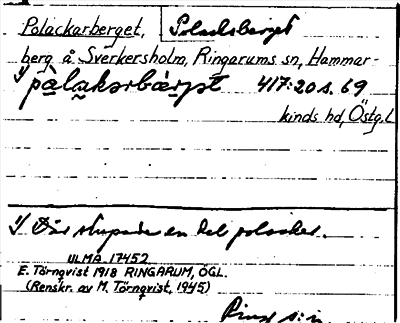 Polackarberget, Polacksberget
berg å Sverkersholm, Ringarums sn, Hammar-
1) pàlakərbærjət 417:20 s. 69
kinds hd, Östg.l.
1) Där stupade en del polacker.
ULMA 17452
E. Törnqvist 1918 RINGARUM, ÖGL.
(Renskr. av M. Törnqvist, 1945)